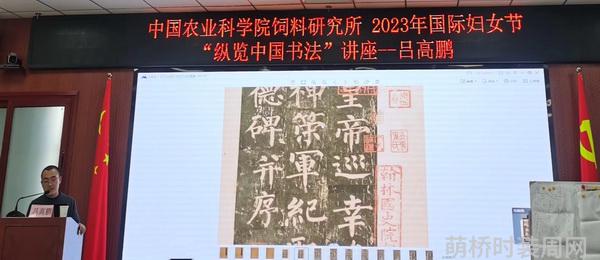 中国农业科学院饲料研究所 2023年国际妇女节
“纵览中国书法”讲座--吕高鹏
皇帝巡幸
神策軍紀
德碑并序
翰林國史院
吕高鹏
萌桥时装周网